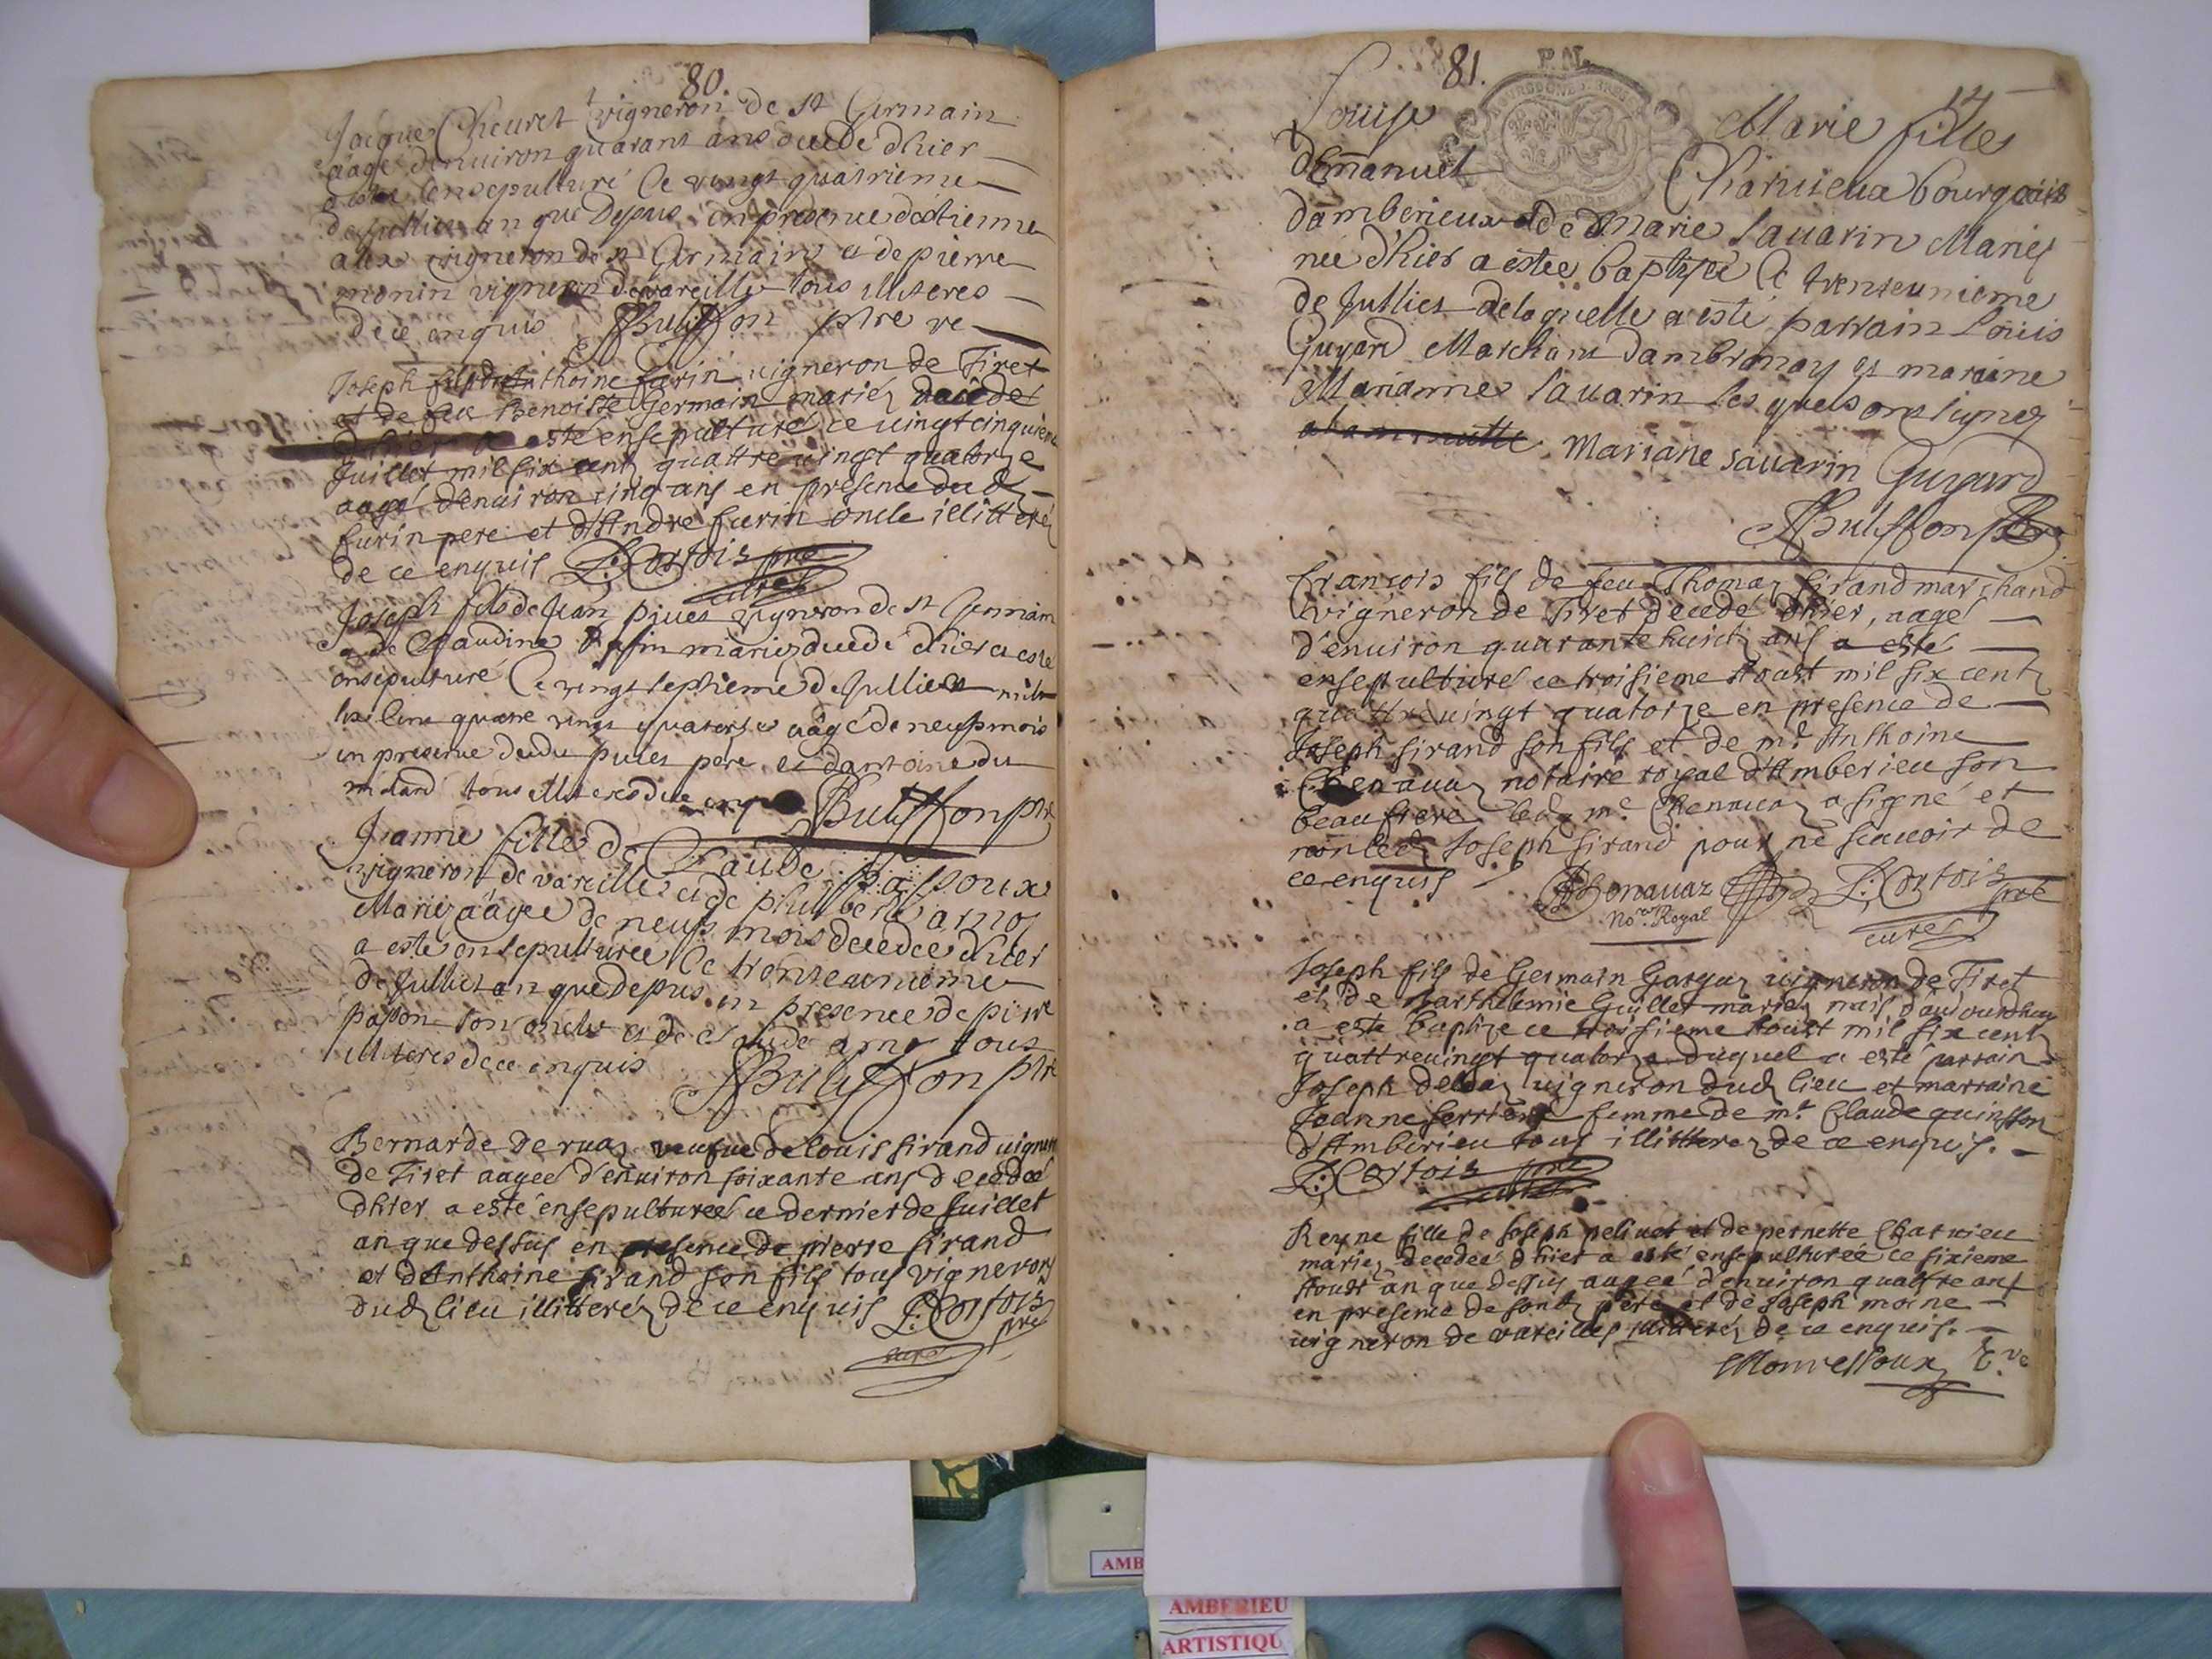 80.
Jacque Cheuret vigneron de st Germain
aagé denuiron quarant ans decedé dhier
a esté ensepulturé Ce vingt quatrieme
de Jullies an que Depus en presence destienne
vigneron de st Germain et de pierre
monin vigneron de vareille tous illiteres
de ce enquis Bulisfon ptre vc
Joseph fils de Anthoine furin uigneron de Tiret
et de feu Benoiste Germain mariéz decedé
dhier a esté ensepulturé ce uingt cinquiem
Juillet mil six cent quattre uingt quatorze
aagé denuiron cinq ans en presence dud
furin pere et dAndré furin oncle illitteré
de ce enquis L. Cortois pre
curé
Joseph fils de Jean piues vigneron de st Germain
et de Claudine mariez decedé dhier a esté
ensepulturé Ce vingt septieme de Jullies mil
six Cens quatre vings quatorse aagé de neufs mois
en presence dudu piues pere et dantoine du
miland tous illiteres de ce enquis Bulisfon ptre
Jeanne fille de Claude papoux
vigneron de vareille et de philiberte arnoz
Mariez aagee de neufs mois decedee dhier
a esté ensepulturee Ce trenteunieme
de Jullies an que depus en presence de pierre
papon son oncle et de Claude arnoz tous
illiteres de ce enquis
Bulisfon ptre
Bernarde De ruaz veufue de Louis sirand uigneron
de Tiret aagee d'enuiron soixante ans decedée
dhier a esté ensepulturée ce dernier de Juillet
an que dessus en presence de pierre sirand
et dAnthoine sirand son fils tous vignerons
dud lieu illitteréz de ce enquis L. Cortois
pre
curé
81.
P.N.
Louise Marie filles
dEmanuel Charuieux bourgeois
damberieux et de Marie Sauarin Mariez
née d'hier a estée baptisée Ce trenteunieme
de Jullies de laquelle a esté parrain Louis
Guyard Marchant dambronay et maraine
Marianne Sauarin les quels ont signez
Mariane sauarin Guyard
Bulisfon ptre
francois fils de feu Thomaz sirand marchand
vigneron de Tiret decedé dhier, aagé
d'enuiron quarante huict ans a esté
ensepulturé ce troisieme Aoust mil six cent
quattre uingt quatorze en presence de
Joseph sirand son fils et de me Anthoine
Chenauaz notaire royal d'Amberieu son
beaufrere led me Chenauaz a signé et
non led Joseph sirand pour ne scauoir de
ce enquis
Chenauaz L. Cortois
Nore Royal pre
curé
Joseph fils de Germain Garguz uigneron de Tiret
et de Barthelemie Guillet mariez nais d'aujourdhuy
a esté baptize ce troisieme Aoust mil six cent
quattreuingt quatorze duquel a esté parrain
Joseph uigneron dud lieu et marraine
Jeanne femme de me Claude quinsson
d'Amberieu tous illitterez de ce enquis.
L. Cortois pre
curé
Reyne fille de Joseph pelinet et de pernette Charuieu
mariez decedeé dhier a esté ensepulturée ce sixieme
Aoust an que dessus aageé d'enuiron quattre ans
en presence de sond pere et de Joseph moine
uigneron de vareilles illiteréz de ce enquis.
AMBERIEU
ARTISTIQU